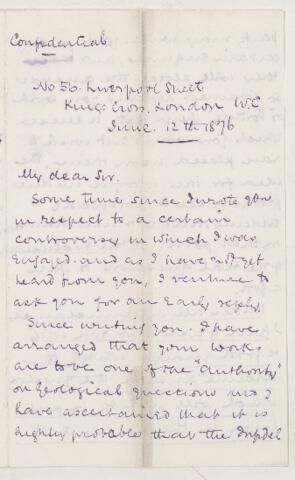 Confidential
No 56. Liverpool Street
Kings Cross. London W.C.
June. 12th 1876
My dear Sir.
Some time since I wrote you
in respect to a certain
controversy in which I was
engaged. and as I have not yet
heard from you, I venture to
ask you for an Early reply.
Since writing you. I have
arranged that your works
are to be one of the "authority"
on Geological questions and I
have ascertained that it is
highly probable that the Infidel